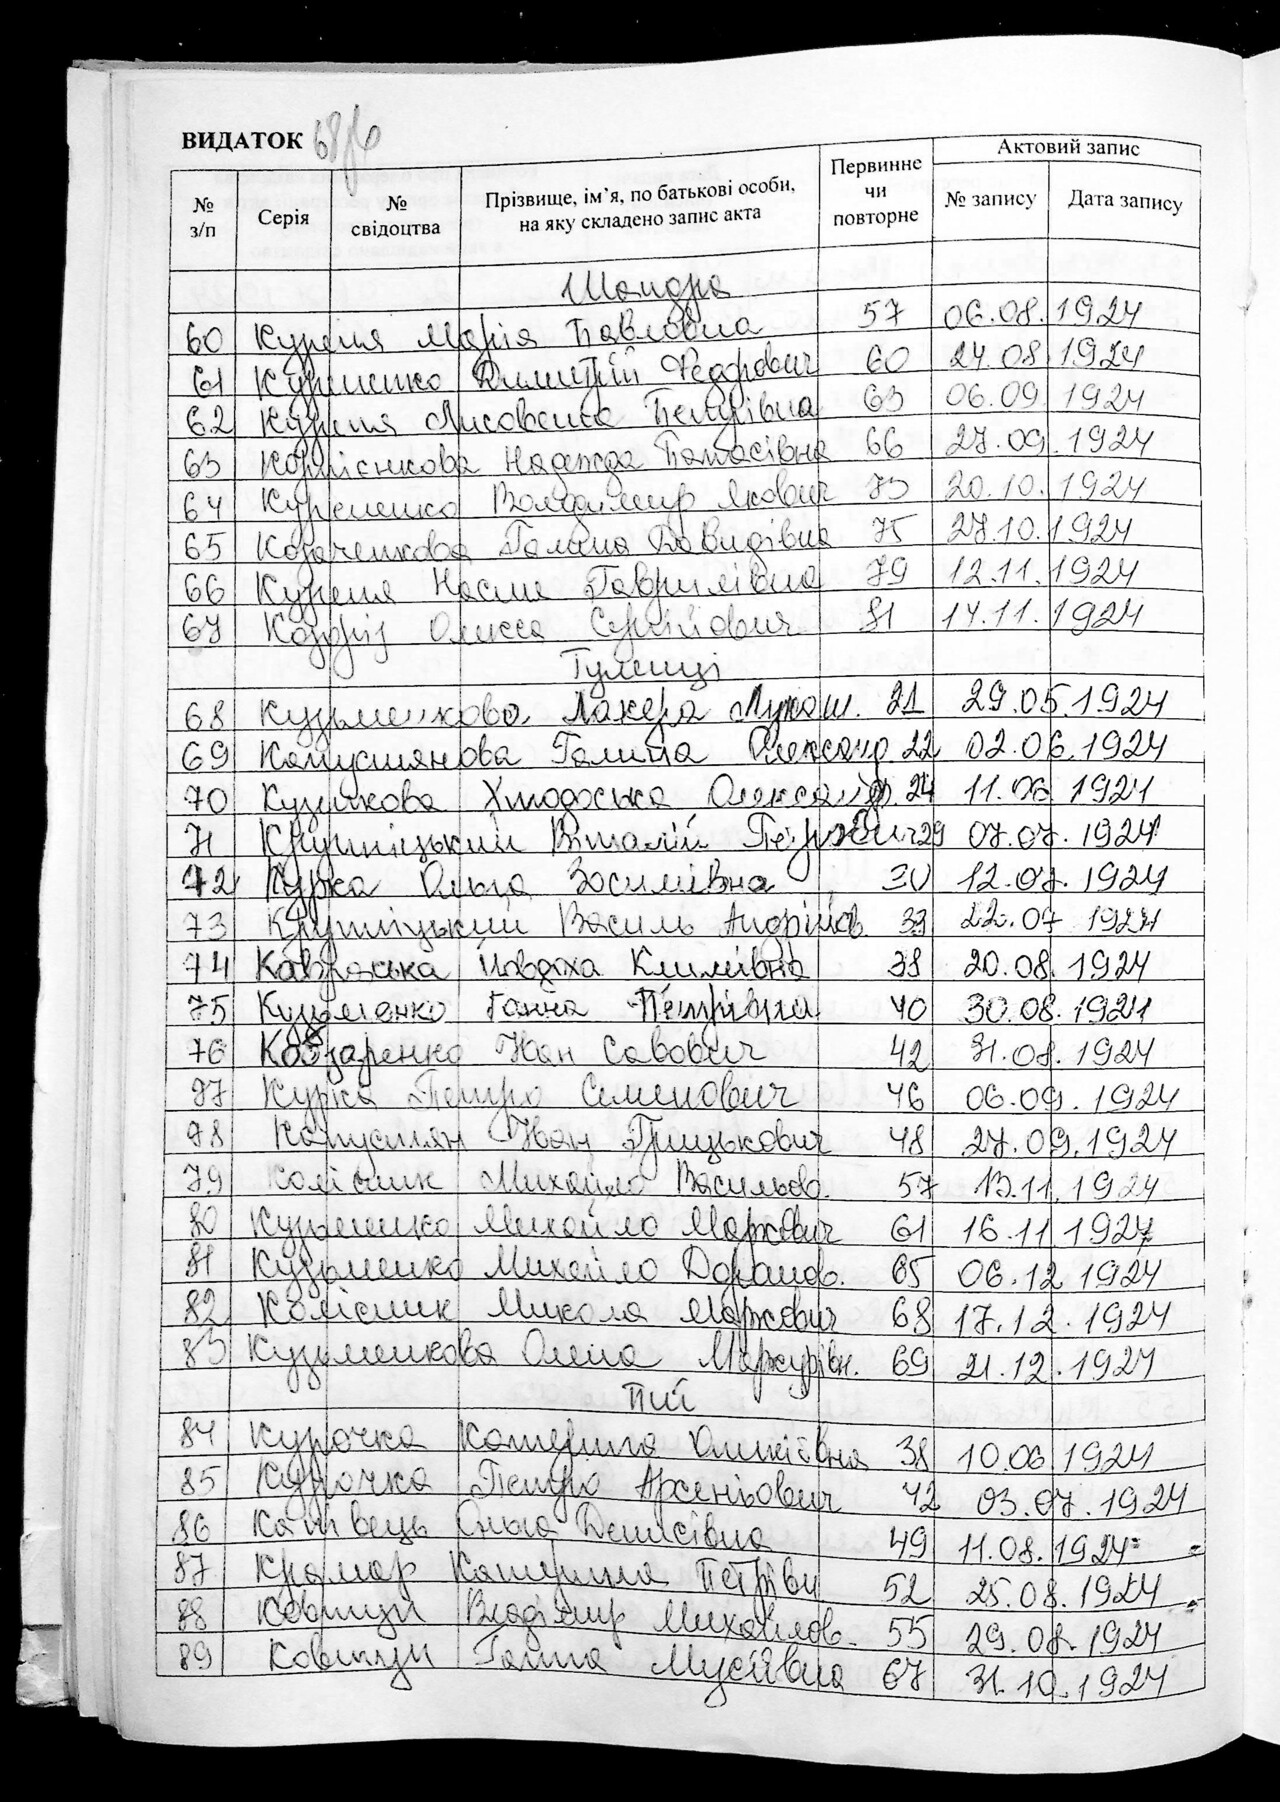 ВИДАТОК
Актовий запис
№ з/п Серія № свідоцтва Прізвище, ім’я, по батькові особи, на яку складено запис акта Первинне чи повторне № запису Дата запису
Шандра
60 Куриня Марія Павловна 57 06.08.1924
61 Куриненко Димитрій Федорович 60 24.08.1924
62 Куриня Петрівна 63 06.09.1924
63 Надежда Панасівна 66 27.09.1924
64 Володимир Якович 73 20.10.1924
65 Козаченкова Галина Давидівна 75 27.10.1924
66 Куриня Гаврилівна 79 12.11.1924
67 Олекса Сергійович 81 14.11.1924
Тулинці
68 Кузьменкова Лукаш. 21 29.05.1924
69 Капустянова Галина Олександ. 22 02.06.1924
70 Хтодоська Олександр. 24 11.06.1924
71 Крушніцький Віталій Петрович 29 07.07.1924
72 Курка Ольга Зосимівна 30 12.07.1924
73 Крушніцький Василь Андрійов. 33 22.07 1924
74 Йовдоха Климівна 38 20.08.1924
75 Кузьменко Ганна Петрівна 40 30.08.1924
76 Кобзаренко Іван Савович 42 31.08.1924
77 Курка Петро Семенович 46 06.09.1924
78 Капустян Іван Грицькович 48 27.09.1924
79 Колісник Михайло Васильов. 57 13.11.1924
80 Кузьменко Михайло Маркович 61 16.11 1924
81 Кузьменко Михайло 65 06.12 1924
82 Колісник Микола Маркович 68 17.12.1924
83 Кузьменкова Олена Меркурівн. 69 21.12.1924
Пії
84 Курочка Катерина 38 10.06 1924
85 Курочка Петро Арсеньович 42 03.07.1924
86 Ольга Денисівна 49 11.08.1924
87 Крамар Катерина Петрівн 52 25.08.1924
88 Ковтун Владімир Михайлов. 55 29.08.1924
89 Ковтун Ганна Мусіївна 67 31.10.1924